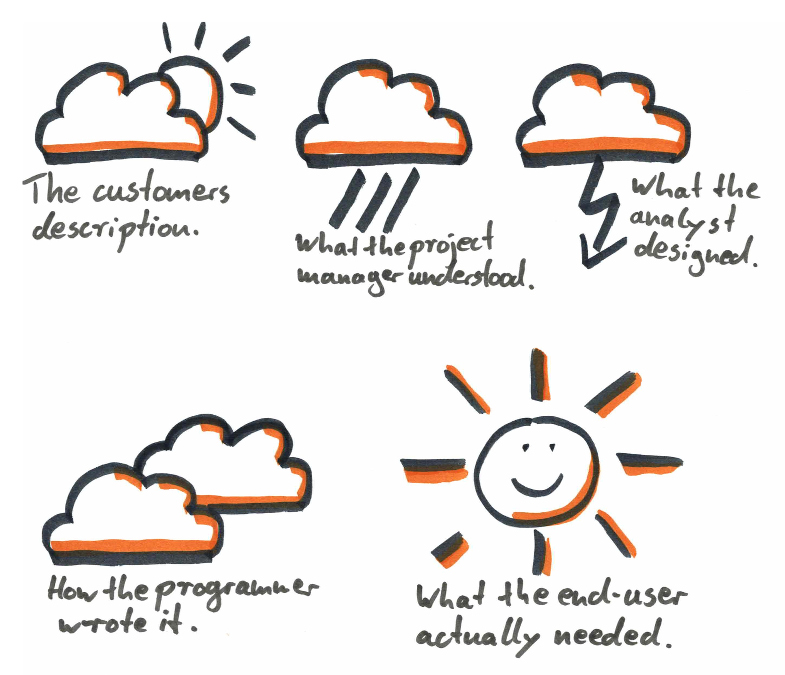 The customers
description.
What the project
manager understood.
What the
analyst
designed.
How the programmer
wrote it.
What the end-user
actually needed.